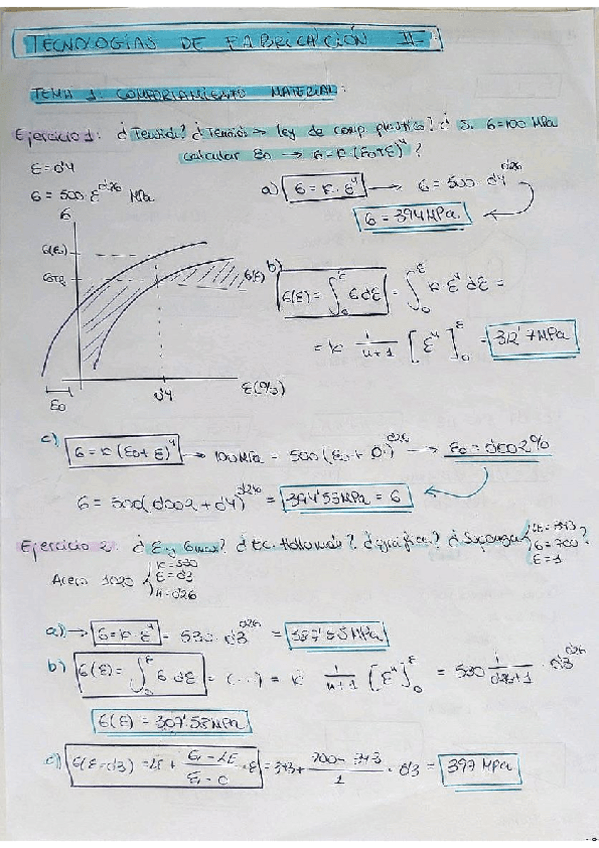 TECNOLOGIAS DE FABRICACIÓN II-
TEMA 1: COMPORTAMIENTO MATERIAL:
Ejercicio 1: ¿Tensión? ¿Tensión → ley de comp. plástico? ¿Si σ=100 MPa
calcular ε₀ → σ=K(ε₀+ε)ⁿ?
ε=0'4
σ=500·ε^0'26 MPa.
a) σ=K·εⁿ → σ=500·0'4^0'26
σ=394MPa.
σ
σ(ε)
σ(ε)
ε₀
0'4
ε(%)
b) σ(ε)=∫₀^ε σdε = ∫₀^ε K εⁿ dε =
= K 1/(n+1) [εⁿ]₀^ε = 312'7MPa
c) σ=K(ε₀+ε)ⁿ → 100MPa = 500(ε₀+0')^0'26 → ε₀=0'002%
σ=500(0'002+0'4)^0'26 = 394'53MPa = σ
Ejercicio 2: ¿ε y σmax? ¿Ec. Hollomon? ¿gráfica? ¿Suponga {LE=343 σ=700 ε=1?
Acero 1020 {K=530 ε=0'3 n=0'26
a) → σ=K·εⁿ = 530·0'3^0'26 = 387'55MPa
b) σ(ε)=∫₀^ε σ dε = (...) = K 1/(n+1) [εⁿ]₀^ε = 530 1/(0'26+1) · 0'3^0'26
σ(ε)=307'58MPa
c) σ(ε=0'3)=LE+ (σ₁-LE)/(ε₁-0) ·ε = 343+ (700-343)/1 · 0'3 = 397 MPa